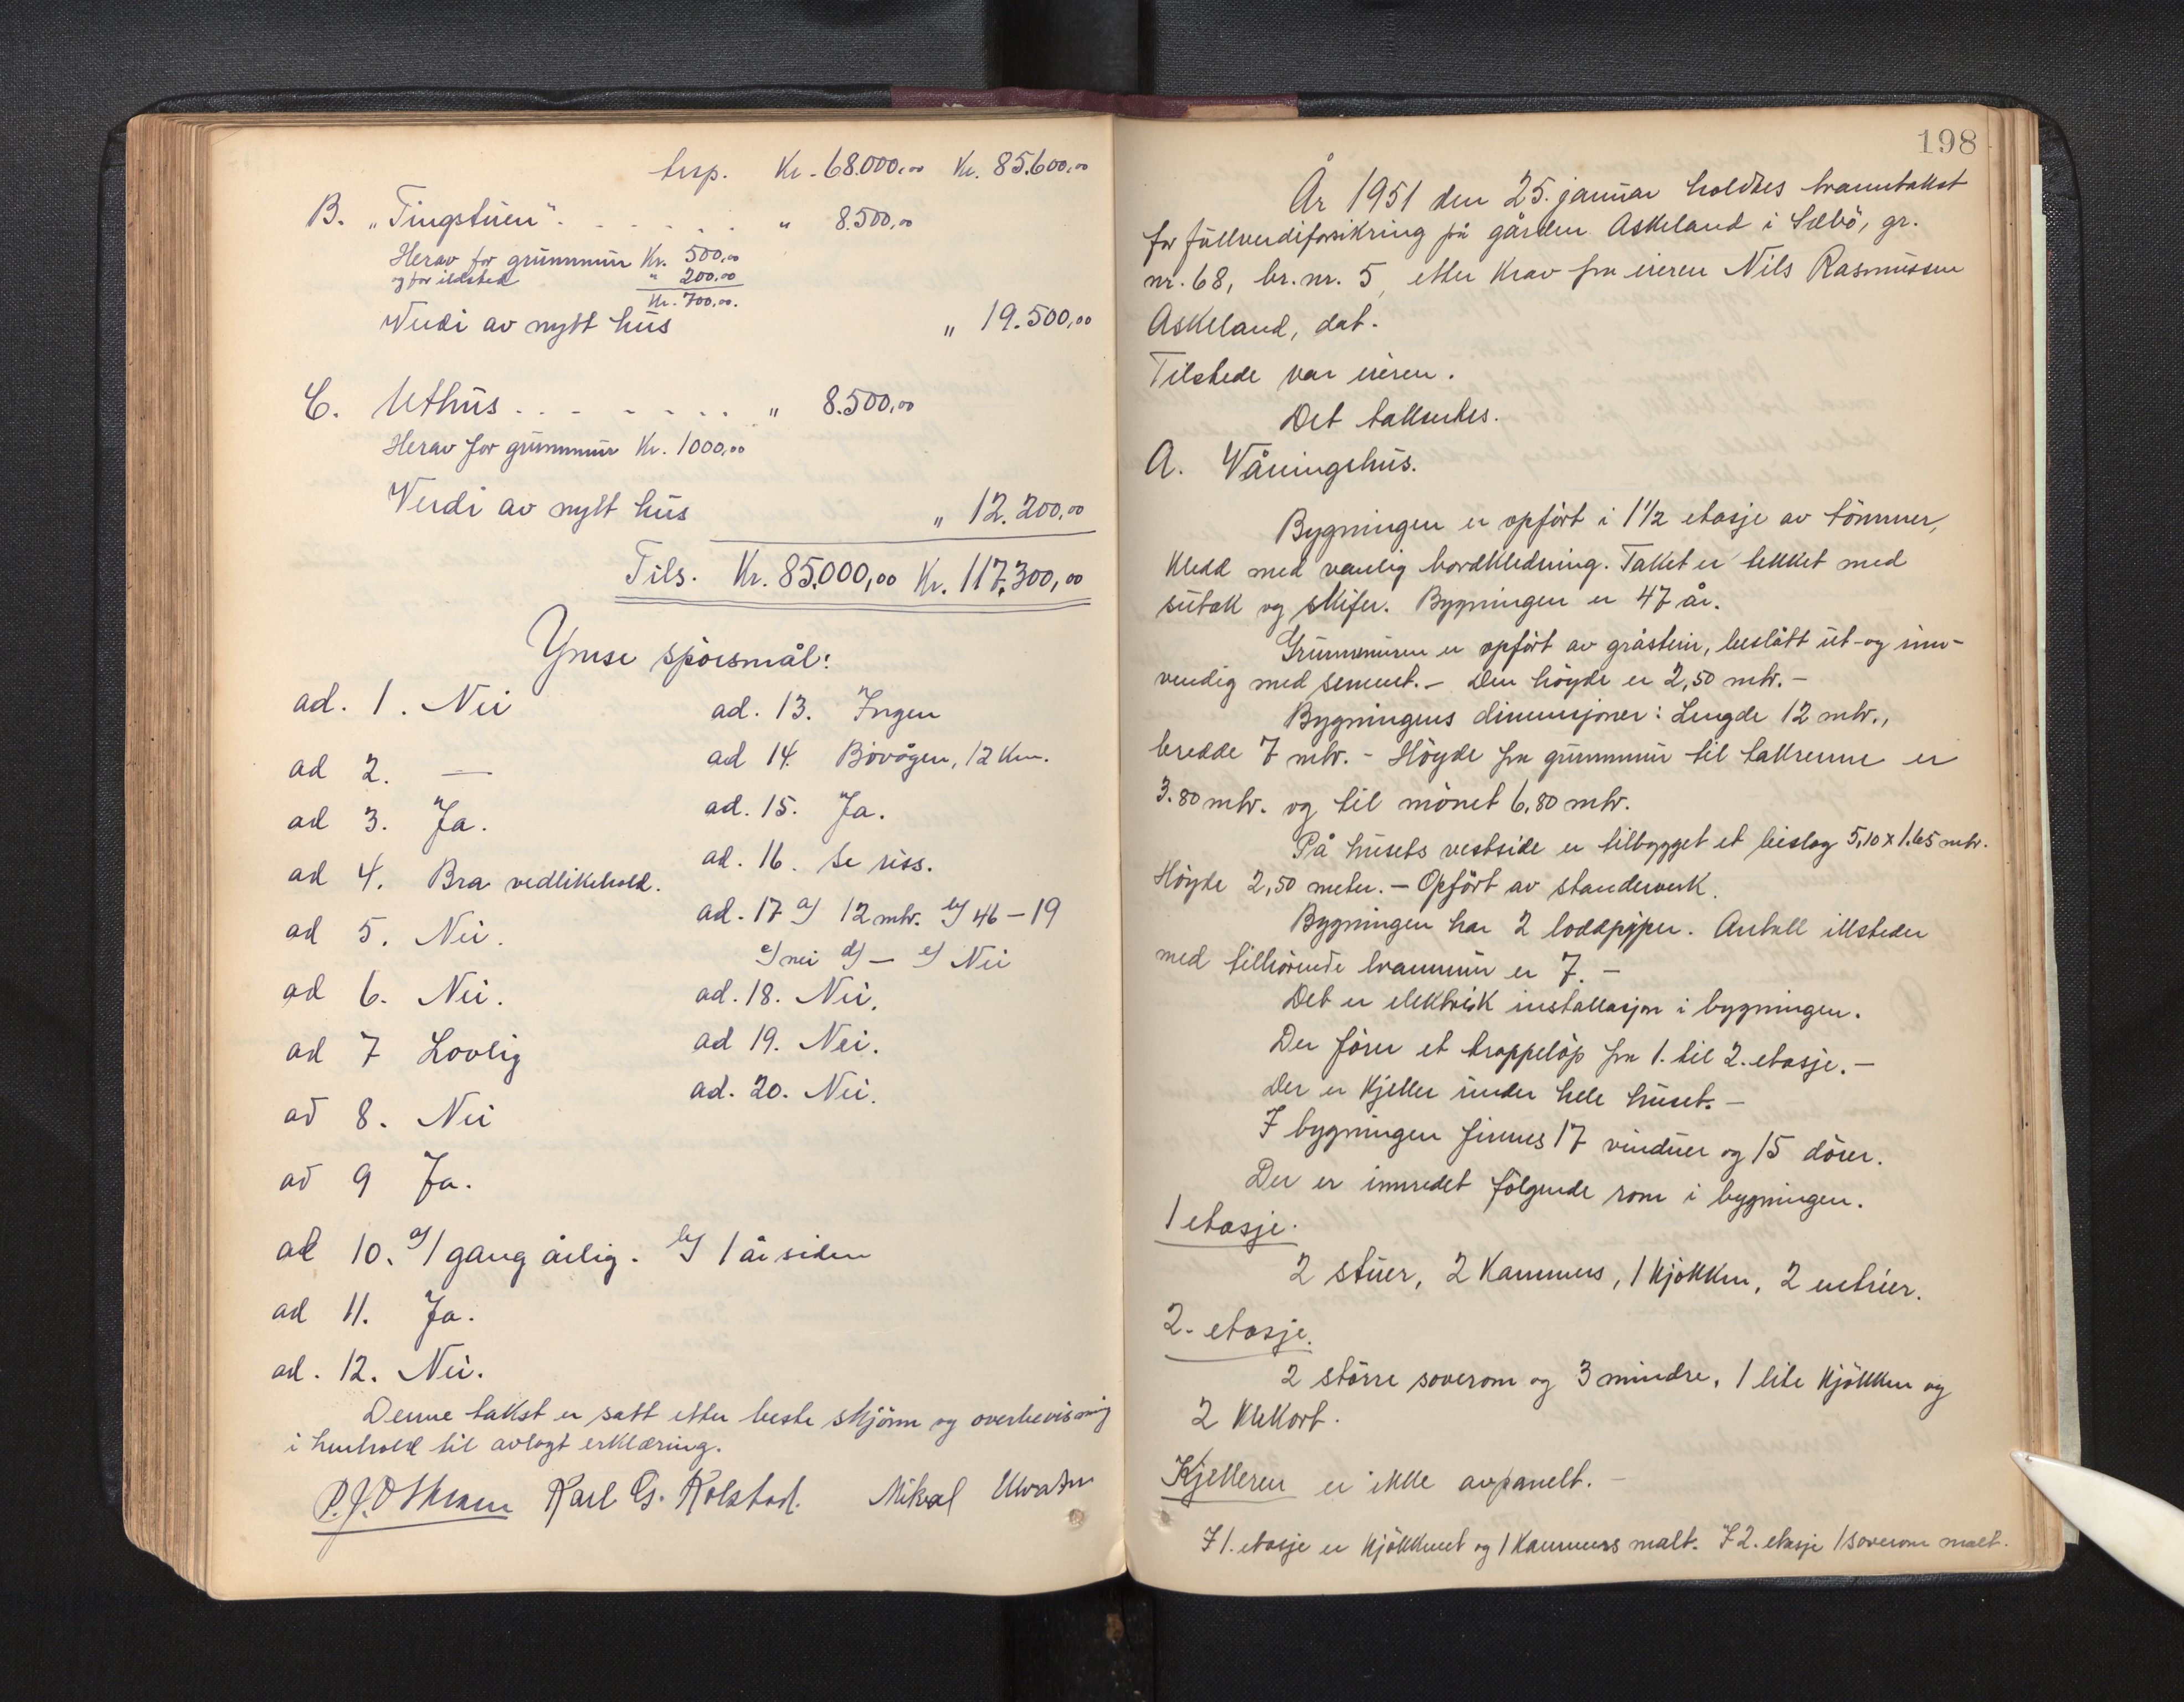 trsp. Kr. 68.000,00 Kr. 85.600,00
B. „Tingstuen“ . . . . . . " 8.500,00
Herav for grunnmur Kr. 500,00
og for ildsted " 200,00
Kr. 700,00.
Verdi av nytt hus " 19.500,00
C. Uthus . . . . . . . " 8.500,00
Herav for grunnmur Kr. 1000,00
Verdi av nytt hus " 12.200,00
Tils. Kr. 85.000,00 Kr. 117.300,00
Ymse spörsmål:
ad. 1. Nei
ad 2. —
ad 3. Ja.
ad 4. Bra vedlikehold.
ad 5. Nei.
ad 6. Nei.
ad 7 Lovlig
ad 8. Nei
ad 9 Ja.
ad 10. a/ 1 gang årlig. b/ 1 år siden
ad 11. Ja.
ad. 12. Nei.
ad. 13. Ingen
ad 14. Bövågen, 12 km.
ad. 15. Ja.
ad. 16. Se riss.
ad. 17 a/ 12 mtr. b/ 46 – 19
c/ nei d/ — e/ Nei
ad. 18. Nei.
ad 19. Nei.
ad. 20. Nei.
Denne takst er satt etter beste skjönn og overbevisning
i henhold til avlagt erklæring.
Karl G. Kolstad. Mikal
198
År 1951 den 25. januar holdtes branntakst
for fullverdiforsikring på gården Askeland i Sæbö, gr.
nr. 68, br. nr. 5, etter krav fra eieren Nils Rasmussen
Askeland, dat.
Tilstede var eieren.
Det taksertes.
A. Våningshus.
Bygningen er opfört i 1 1/2 etasje av tömmer,
kledd med vanlig bordkledning. Taket er tekket med
sutak og skifer. Bygningen er 47 år.
Grunnmuren er opfört av gråstein, beslått ut- og inn-
vendig med sement. – Den höyde er 2,50 mtr. –
Bygningens dimensjoner: Lengde 12 mtr.,
bredde 7 mtr. – Höyde fra grunnmur til takrenne er
3.80 mtr. og til mönet 6,80 mtr.
På husets vestside er tilbygget et bislag 5,10 x 1.65 mtr.
Höyde 2,50 meter. – Opfört av standerverk.
Bygningen har 2 loddpiper. Antall illsteder
med tilhörende brannmur er 7. –
Det er elektrisk installasjon i bygningen.
Der förer et trappelöp fra 1. til 2. etasje. –
Der er kjeller under hele huset. –
I bygningen finnes 17 vinduer og 15 dörer.
Der er innredet fölgende rom i bygningen.
1 etasje.
2 stuer, 2 kammers, 1 kjökken, 2 entréer.
2. etasje.
2 större soverom og 3 mindre, 1 lite kjökken og
2 klekott.
Kjelleren er ikke avpanelt. –
I 1. etasje er kjökkenet og 1 kammers malt. I 2. etasje 1 soverom malt.